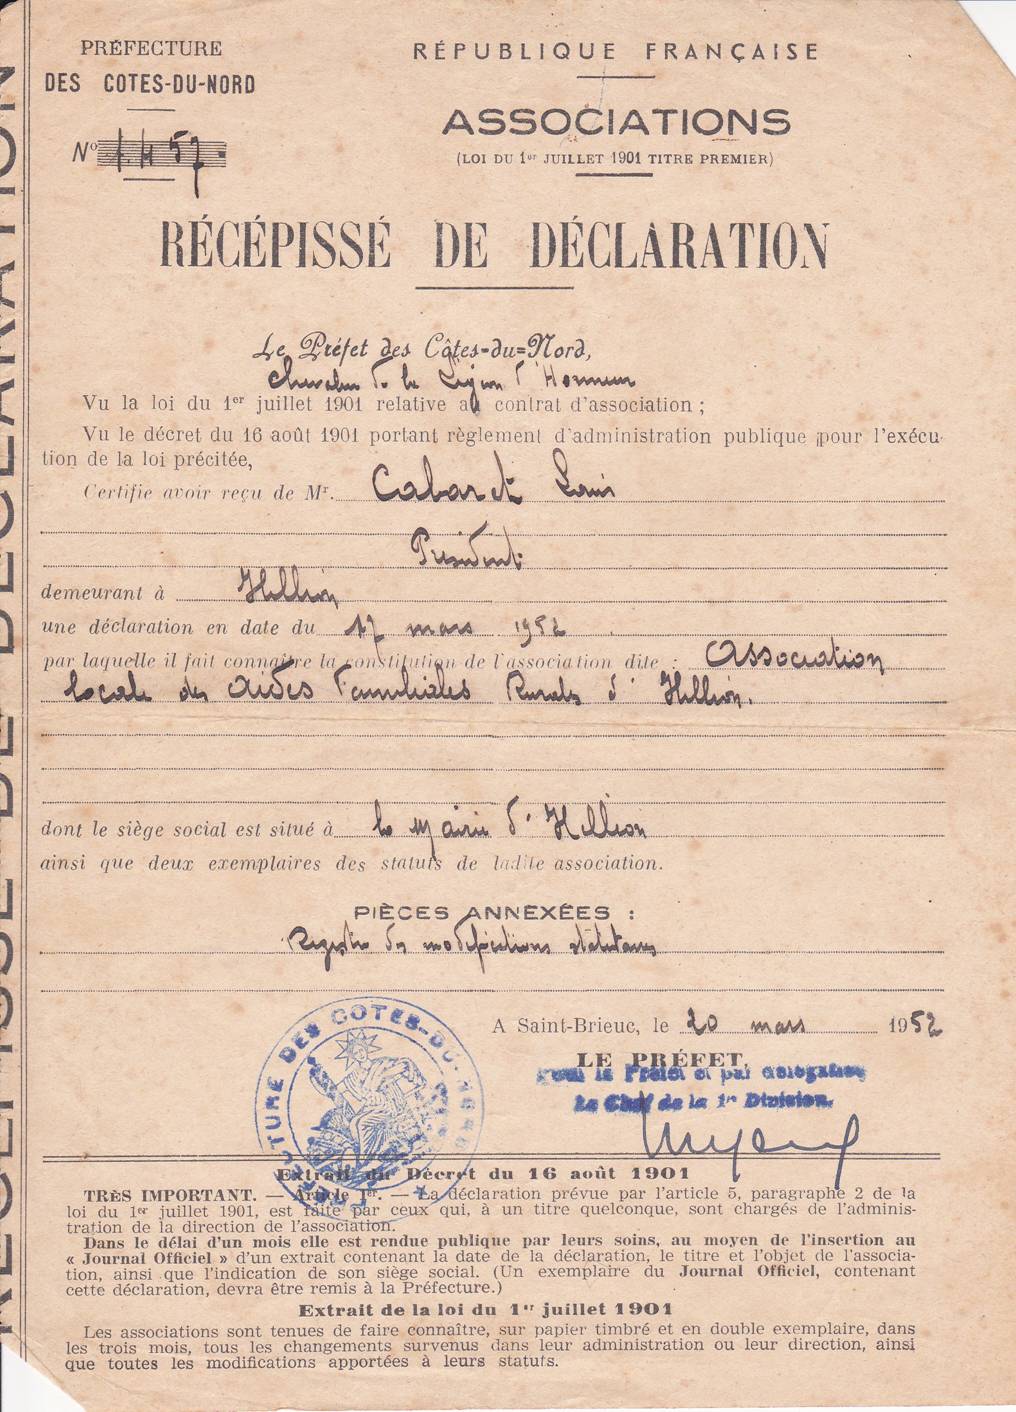 PRÉFECTURE
DES COTES-DU-NORD
N° 1.457
RÉPUBLIQUE FRANÇAISE
ASSOCIATIONS
(LOI DU 1er JUILLET 1901 TITRE PREMIER)
RÉCÉPISSÉ DE DÉCLARATION
Le Préfet des Côtes-du-Nord,
Chevalier de la Légion d'Honneur
Vu la loi du 1er juillet 1901 relative au contrat d'association ;
Vu le décret du 16 août 1901 portant règlement d'administration publique pour l'exécu-
tion de la loi précitée,
Certifie avoir reçu de Mr. Cabaret Louis
Président
demeurant à Hillion
une déclaration en date du 17 mars 1952
par laquelle il fait connaître la constitution de l'association dite : Association
locale des Aides Familiales Rurales d'Hillion.
dont le siège social est situé à la Mairie d'Hillion
ainsi que deux exemplaires des statuts de ladite association.
PIÈCES ANNEXÉES :
Registre des modifications statutaires
A Saint-Brieuc, le 20 mars 1952
LE PRÉFET,
Pour le Préfet et par délégation
Le Chef de la 1re Division,
PREFECTURE DES COTES-DU-NORD
Extrait du Décret du 16 août 1901
TRÈS IMPORTANT. — Article 1er. — La déclaration prévue par l'article 5, paragraphe 2 de la
loi du 1er juillet 1901, est faite par ceux qui, à un titre quelconque, sont chargés de l'adminis-
tration de la direction de l'association.
Dans le délai d'un mois elle est rendue publique par leurs soins, au moyen de l'insertion au
« Journal Officiel » d'un extrait contenant la date de la déclaration, le titre et l'objet de l'associa-
tion, ainsi que l'indication de son siège social. (Un exemplaire du Journal Officiel, contenant
cette déclaration, devra être remis à la Préfecture.)
Extrait de la loi du 1er juillet 1901
Les associations sont tenues de faire connaître, sur papier timbré et en double exemplaire, dans
les trois mois, tous les changements survenus dans leur administration ou leur direction, ainsi
que toutes les modifications apportées à leurs statuts.
RÉCÉPISSÉ DE DÉCLARATION